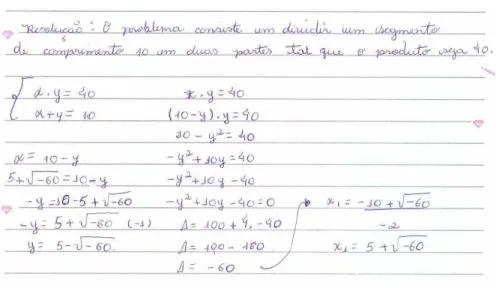 Resolução: O problema consiste em dividir um segmento
de comprimento 10 em duas partes tal que o produto seja 40.
x·y = 40    x·y = 40
x+y = 10    (10-y)·y = 40
10 - y² = 40
x = 10 - y    -y² + 10y = 40
5+√-60 = 10+y    -y² + 10y - 40
-y = 10-5+√-60    -y² + 10y - 40 = 0    x₁ = -10 + √-60
-y = 5+√-60 (-1)    Δ = 100 + 4·-40    -2
y = 5-√-60    Δ = 100 - 160    x₁ = 5 + √-60
Δ = -60